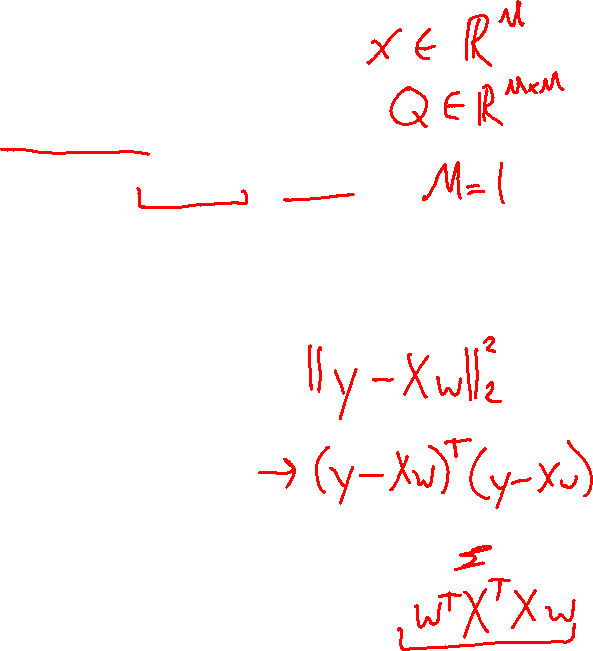 x ∈ ℝᴹ
Q ∈ ℝᴹˣᴹ
M = 1
||y - Xw||₂²
→ (y - Xw)ᵀ(y - Xw)
wᵀXᵀXw